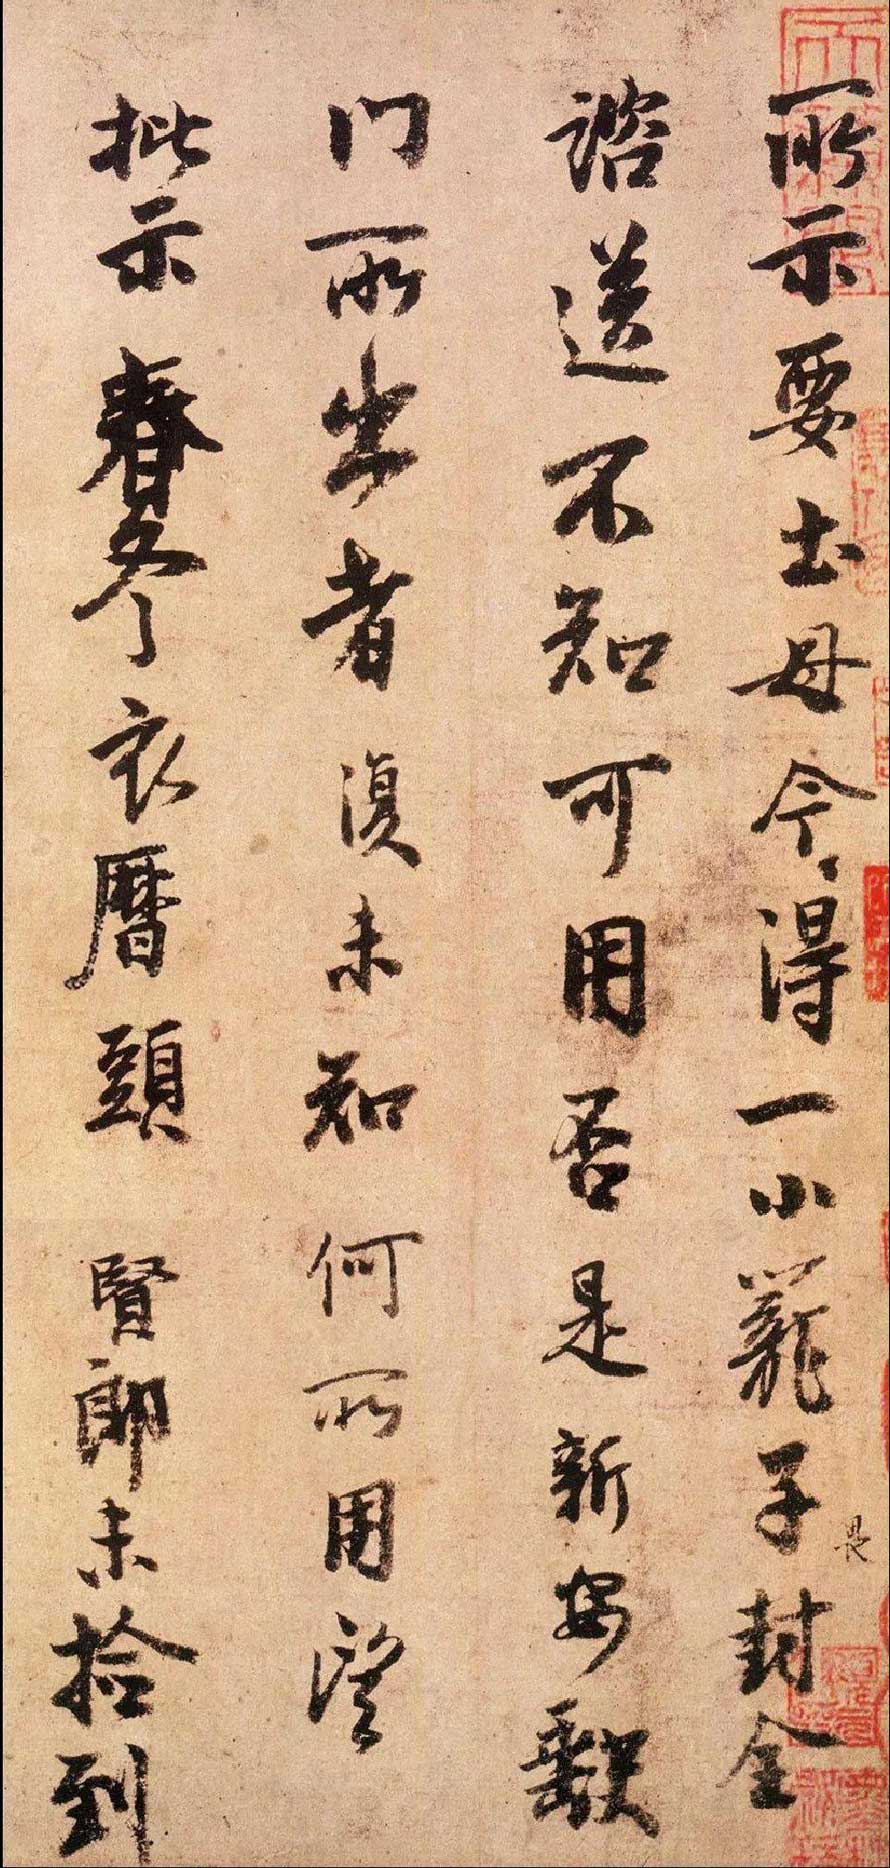 所示要土母今得一小籠子封全
諮送不知可用否是新安缺
门所出者復未知何所用望
批示春冬衣曆頭賢郎未捡到